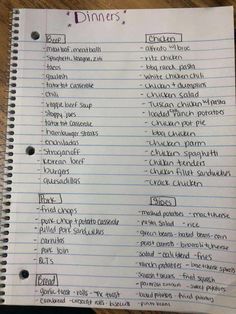 Dinners
Beef
- meatloaf, meatballs
- spaghetti, lasagna, ziti
- tacos
- goulash
- tator tot casserole
- chili
- veggie beef soup
- sloppy joes
- tator tot casserole
- hamburger steaks
- enchiladas
- stroganoff
- korean beef
- burgers
- quesadillas
Chicken
- alfredo w/ broc
- ritz chicken
- bbq ranch, pasta
- white chicken chili
- chicken + dumplins
- chicken salad
- Tuscan chicken w/ pasta
- loaded ranch potatoes
- chicken pot pie
- bbq chicken
- chicken parm
- chicken spaghetti
- chicken tenders
- chicken fillet sandwiches
- crack chicken
Pork
- fried chops
- pork chop + potato casserole
- pulled pork sandwiches
- carnitas
- pork loin
- BLTS
Sides
- mashed potatoes - mac + cheese
- salad - rice
- green beans - baked beans - corn
- roast carrots - broccoli + cheese
- salad - cali blend - fries
- ranch potatoes
- squash
- baked potatoes - fried potatoes
- pinto beans
Bread
- garlic toast - rolls - tx toast
- cornbread - crescent rolls - biscuits